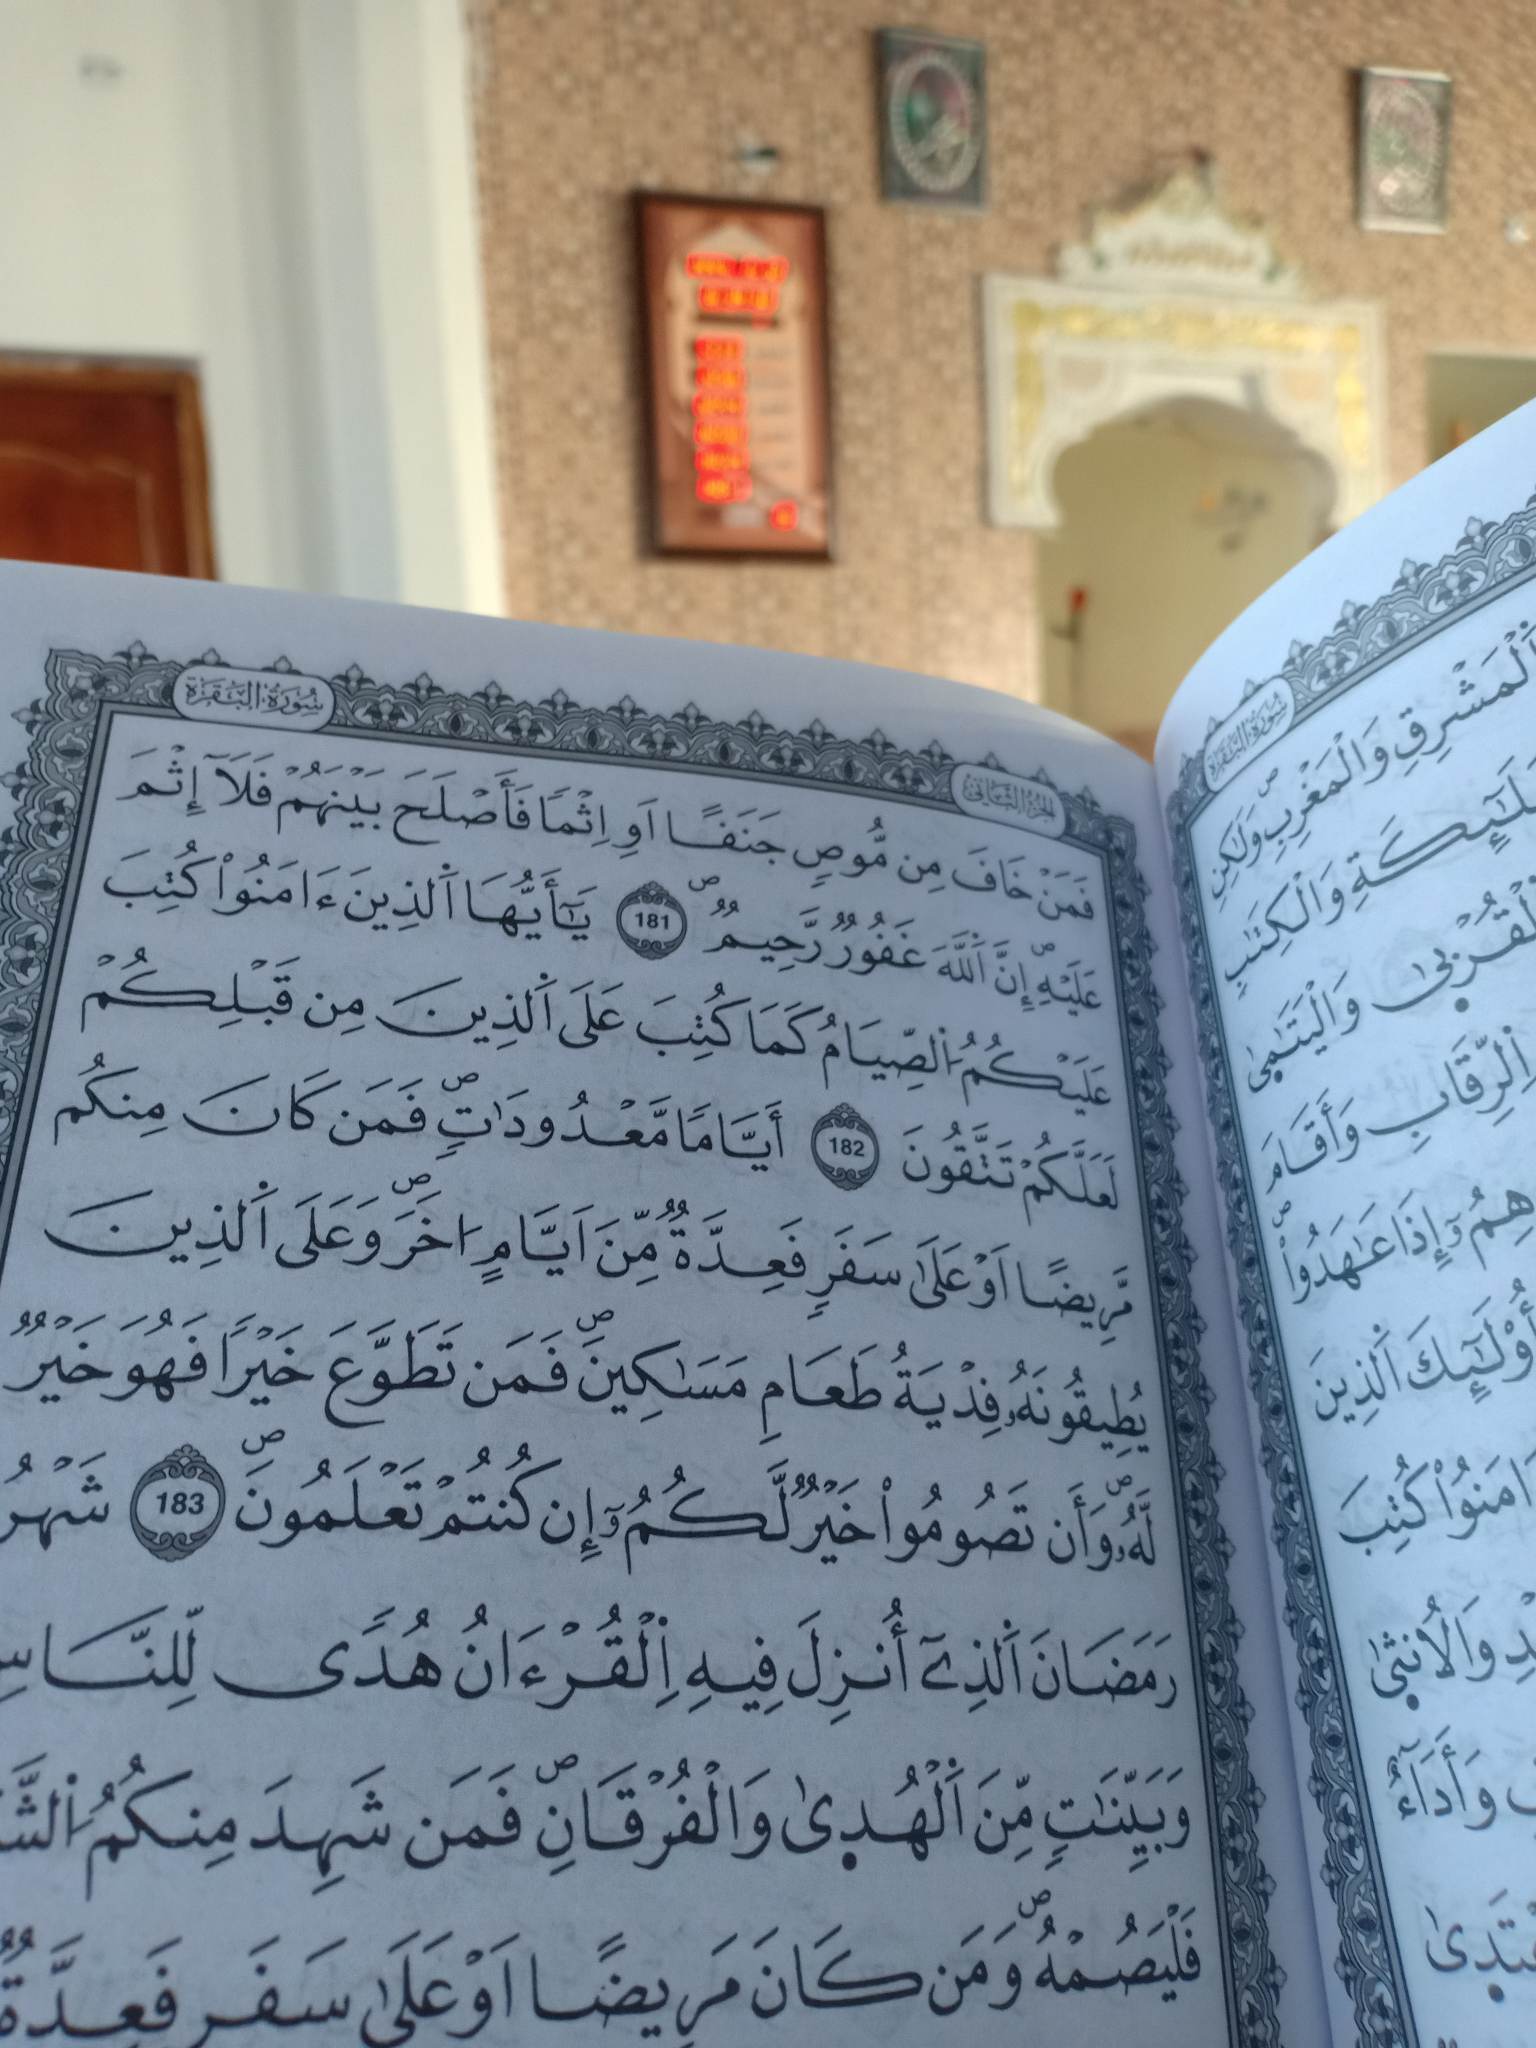 سُورَةُ الْبَقَرَةِ
الجُزْءُ الثَّانِي
فَمَنْ خَافَ مِن مُّوصٍ جَنَفًا اَوِ اِثْمًا فَأَصْلَحَ بَيْنَهُمْ فَلَآ إِثْمَ
عَلَيْهِ إِنَّ اَللَّهَ غَفُورٌ رَّحِيمٌ 181 يَٰٓأَيُّهَا اَلذِينَ ءَامَنُواْ كُتِبَ
عَلَيْكُمُ اُلصِّيَامُ كَمَا كُتِبَ عَلَى اَلذِينَ مِن قَبْلِكُمْ
لَعَلَّكُمْ تَتَّقُونَ 182 أَيَّامًا مَّعْدُودَٰتٍ فَمَن كَانَ مِنكُم
مَّرِيضًا اَوْ عَلَىٰ سَفَرٍ فَعِدَّةٌ مِّنَ اَيَّامٍ اُخَرَ وَعَلَى اَلذِينَ
يُطِيقُونَهُۥ فِدْيَةُ طَعَامِ مَسَٰكِينَ فَمَن تَطَوَّعَ خَيْرًا فَهُوَ خَيْرٌ
لَّهُۥ وَأَن تَصُومُواْ خَيْرٌ لَّكُمُۥٓ إِن كُنتُمْ تَعْلَمُونَ 183 شَهْرُ
رَمَضَانَ اَلذِےٓ أُنزِلَ فِيهِ اِلْقُرْءَانُ هُدًى لِّلنَّاسِ
وَبَيِّنَٰتٍ مِّنَ اَلْهُدِىٰ وَالْفُرْقَانِ فَمَن شَهِدَ مِنكُمُ
فَلْيَصُمْهُ وَمَن كَانَ مَرِيضًا اَوْ عَلَىٰ سَفَرٍ فَعِدَّةٌ
سُورَةُ الْبَقَرَةِ
اَلْمَشْرِقِ وَالْمَغْرِبِ وَلَٰكِنِ
وَالْكِتَٰبِ
وَالْيَتَٰمِىٰ
اِلرِّقَابِ وَأَقَامَ
إِذَا عَٰهَدُواْ
أُوْلَٰٓئِكَ اَلذِينَ
كُتِبَ
وَالُانثِىٰ
وَأَدَآءٌ